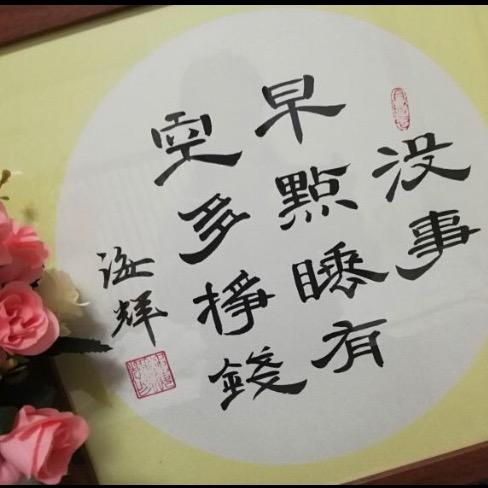 没事
早點睡有
空多掙錢
海輝